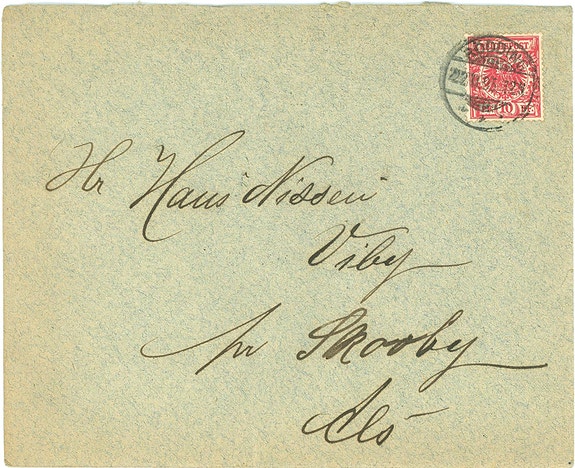 REICHSPOST
10
Hr Hans Nissen
Viby
pr Skovby
Als